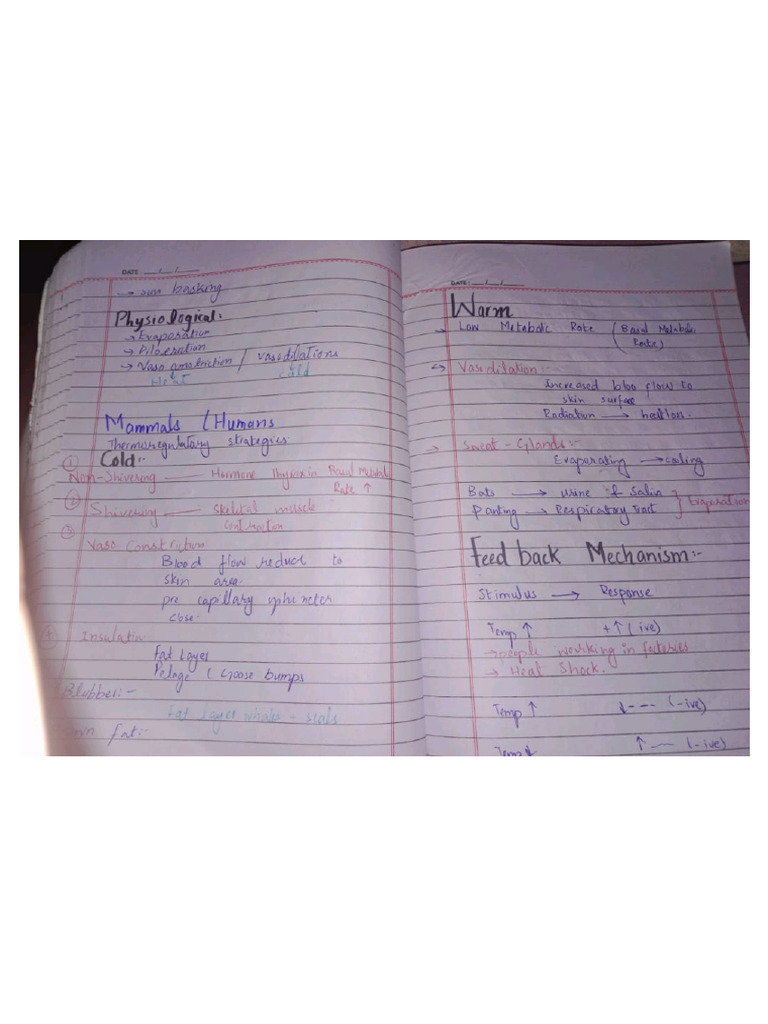 DATE: __/__/____
→ sun basking
Physiological:
→ Evaporation
→ Piloerection
→ Vaso constriction / vasodilations
Heat cold
Mammals (Humans
Thermoregulatory strategies
① Cold:-
Non-Shivering —— Hormone thyroxin Basal Metabolic
Rate ↑
②
Shivering —— skeletal muscle
contraction
③
Vaso Constriction
Blood flow reduce to
skin area.
pre capillary sphincter
close.
④ Insulation
Fat Layer
Pelage (Goose bumps
Blubber:-
Fat layer whales - seals
fat:-
DATE: __/__/____
Warm
→ Low Metabolic Rate (Basal Metabolic
Rate)
↪ Vasodilation:-
Increased bloo flow to
skin surface
Radiation → heat loss.
→ Sweat - Glands:-
Evaporating → cooling
Bats → urine & Saliva } Evaporation
Panting → Respiratory tract
Feed back Mechanism:-
Stimulus → Response
Temp ↑ +↑ (ive)
→ people working in factories
→ Heat Shock.
Temp ↑ ↓--- (-ive)
Temp ↓ ↑ --- (-ive)